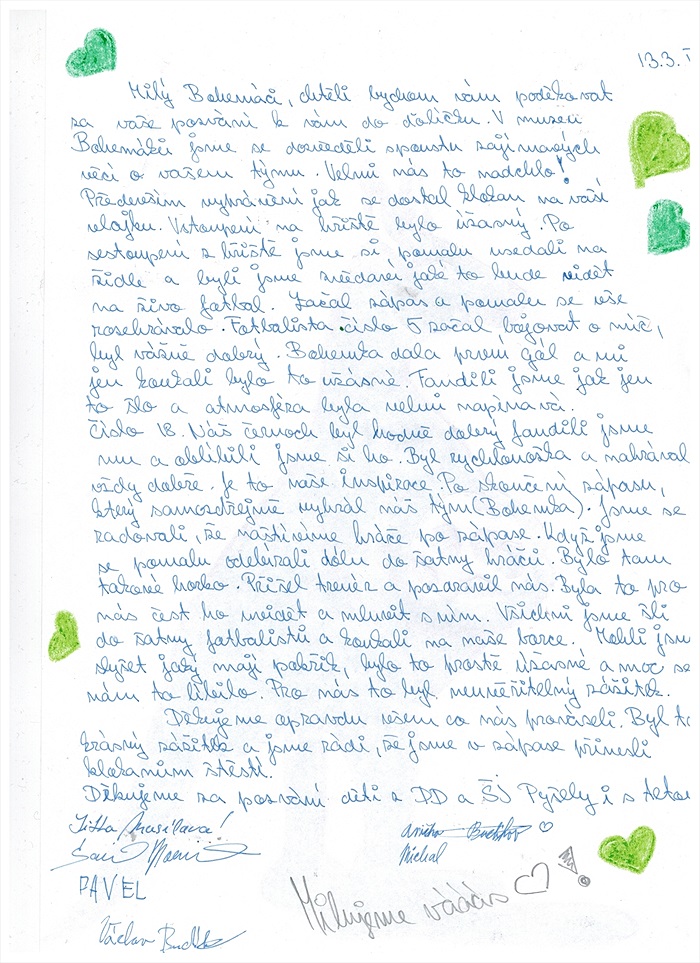 13.3.
Milý Bohemáci, chtěli bychom vám poděkovat
za vaše pozvání k vám do ďolíčku. V muzeu
Bohemáků jsme se dozvěděli spoustu zajímavých
věcí o vašem týmu. Velmi nás to nadchlo!
Především vyprávění jak se dostal klokan na vaší
vlajku. Vstoupení na hřiště bylo úžasný. Po
sestoupení z hřiště jsme si pomalu usedali na
židle a byli jsme zvědaví jaké to bude vidět
na živo fotbal. Začal zápas a pomalu se vše
rozehrávalo. Fotbalista číslo 5 začal bojovat o míč,
byl vážně dobrý. Bohemka dala první gól a mi
jen koukali bylo to úžasné. Fandili jsme jak jen
to šlo a atmosféra byla velmi napínavá.
Číslo 18. Náš černoch byl hodně dobrý fandili jsme
mu a oblíbili jsme si ho. Byl rychlonožka a nahrával
vždy dobře. Je to naše inspirace. Po skončení zápasu,
který samozdřejmě vyhrál náš tým (Bohemka). Jsme se
radovali, že náštívíme hráče po zápase. Když jsme
se pomalu odebírali dólu do šatny hráčů. Bylo tam
takové horko. Přišel trenér a pozdravil nás. Byla to pro
nás čest ho vidět a mluvit s ním. Všichni jsme šli
do šatny fotbalistů a koukali na naše borce. Mohli jsme
slyšet jaký mají pokřik, bylo to prostě úžasné a moc se
nám to líbilo. Pro nás to byl neuvěřitelný zážitek.
Děkujeme opravdu všem co nás prováseli. Byl to
krásný zážitek a jsme rádi, že jsme v zápase přinesli
klokanům štěstí.
Děkujeme za pozvání děti z DD a ŠJ Pyšely i s tetou
Michal
PAVEL
Milujeme váááás
Václav